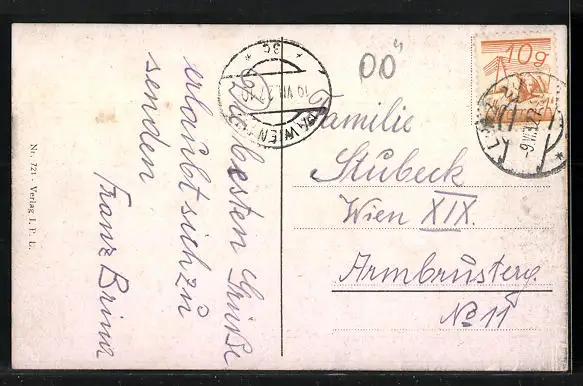 Die besten Grüße
erlaubt sich zu
senden
Franz
Familie
Stubeck
Wien XIX.
Armbrusterg.
No 11
10g
WIEN
10.VII.27
Nr. 721 - Verlag I. P. L.